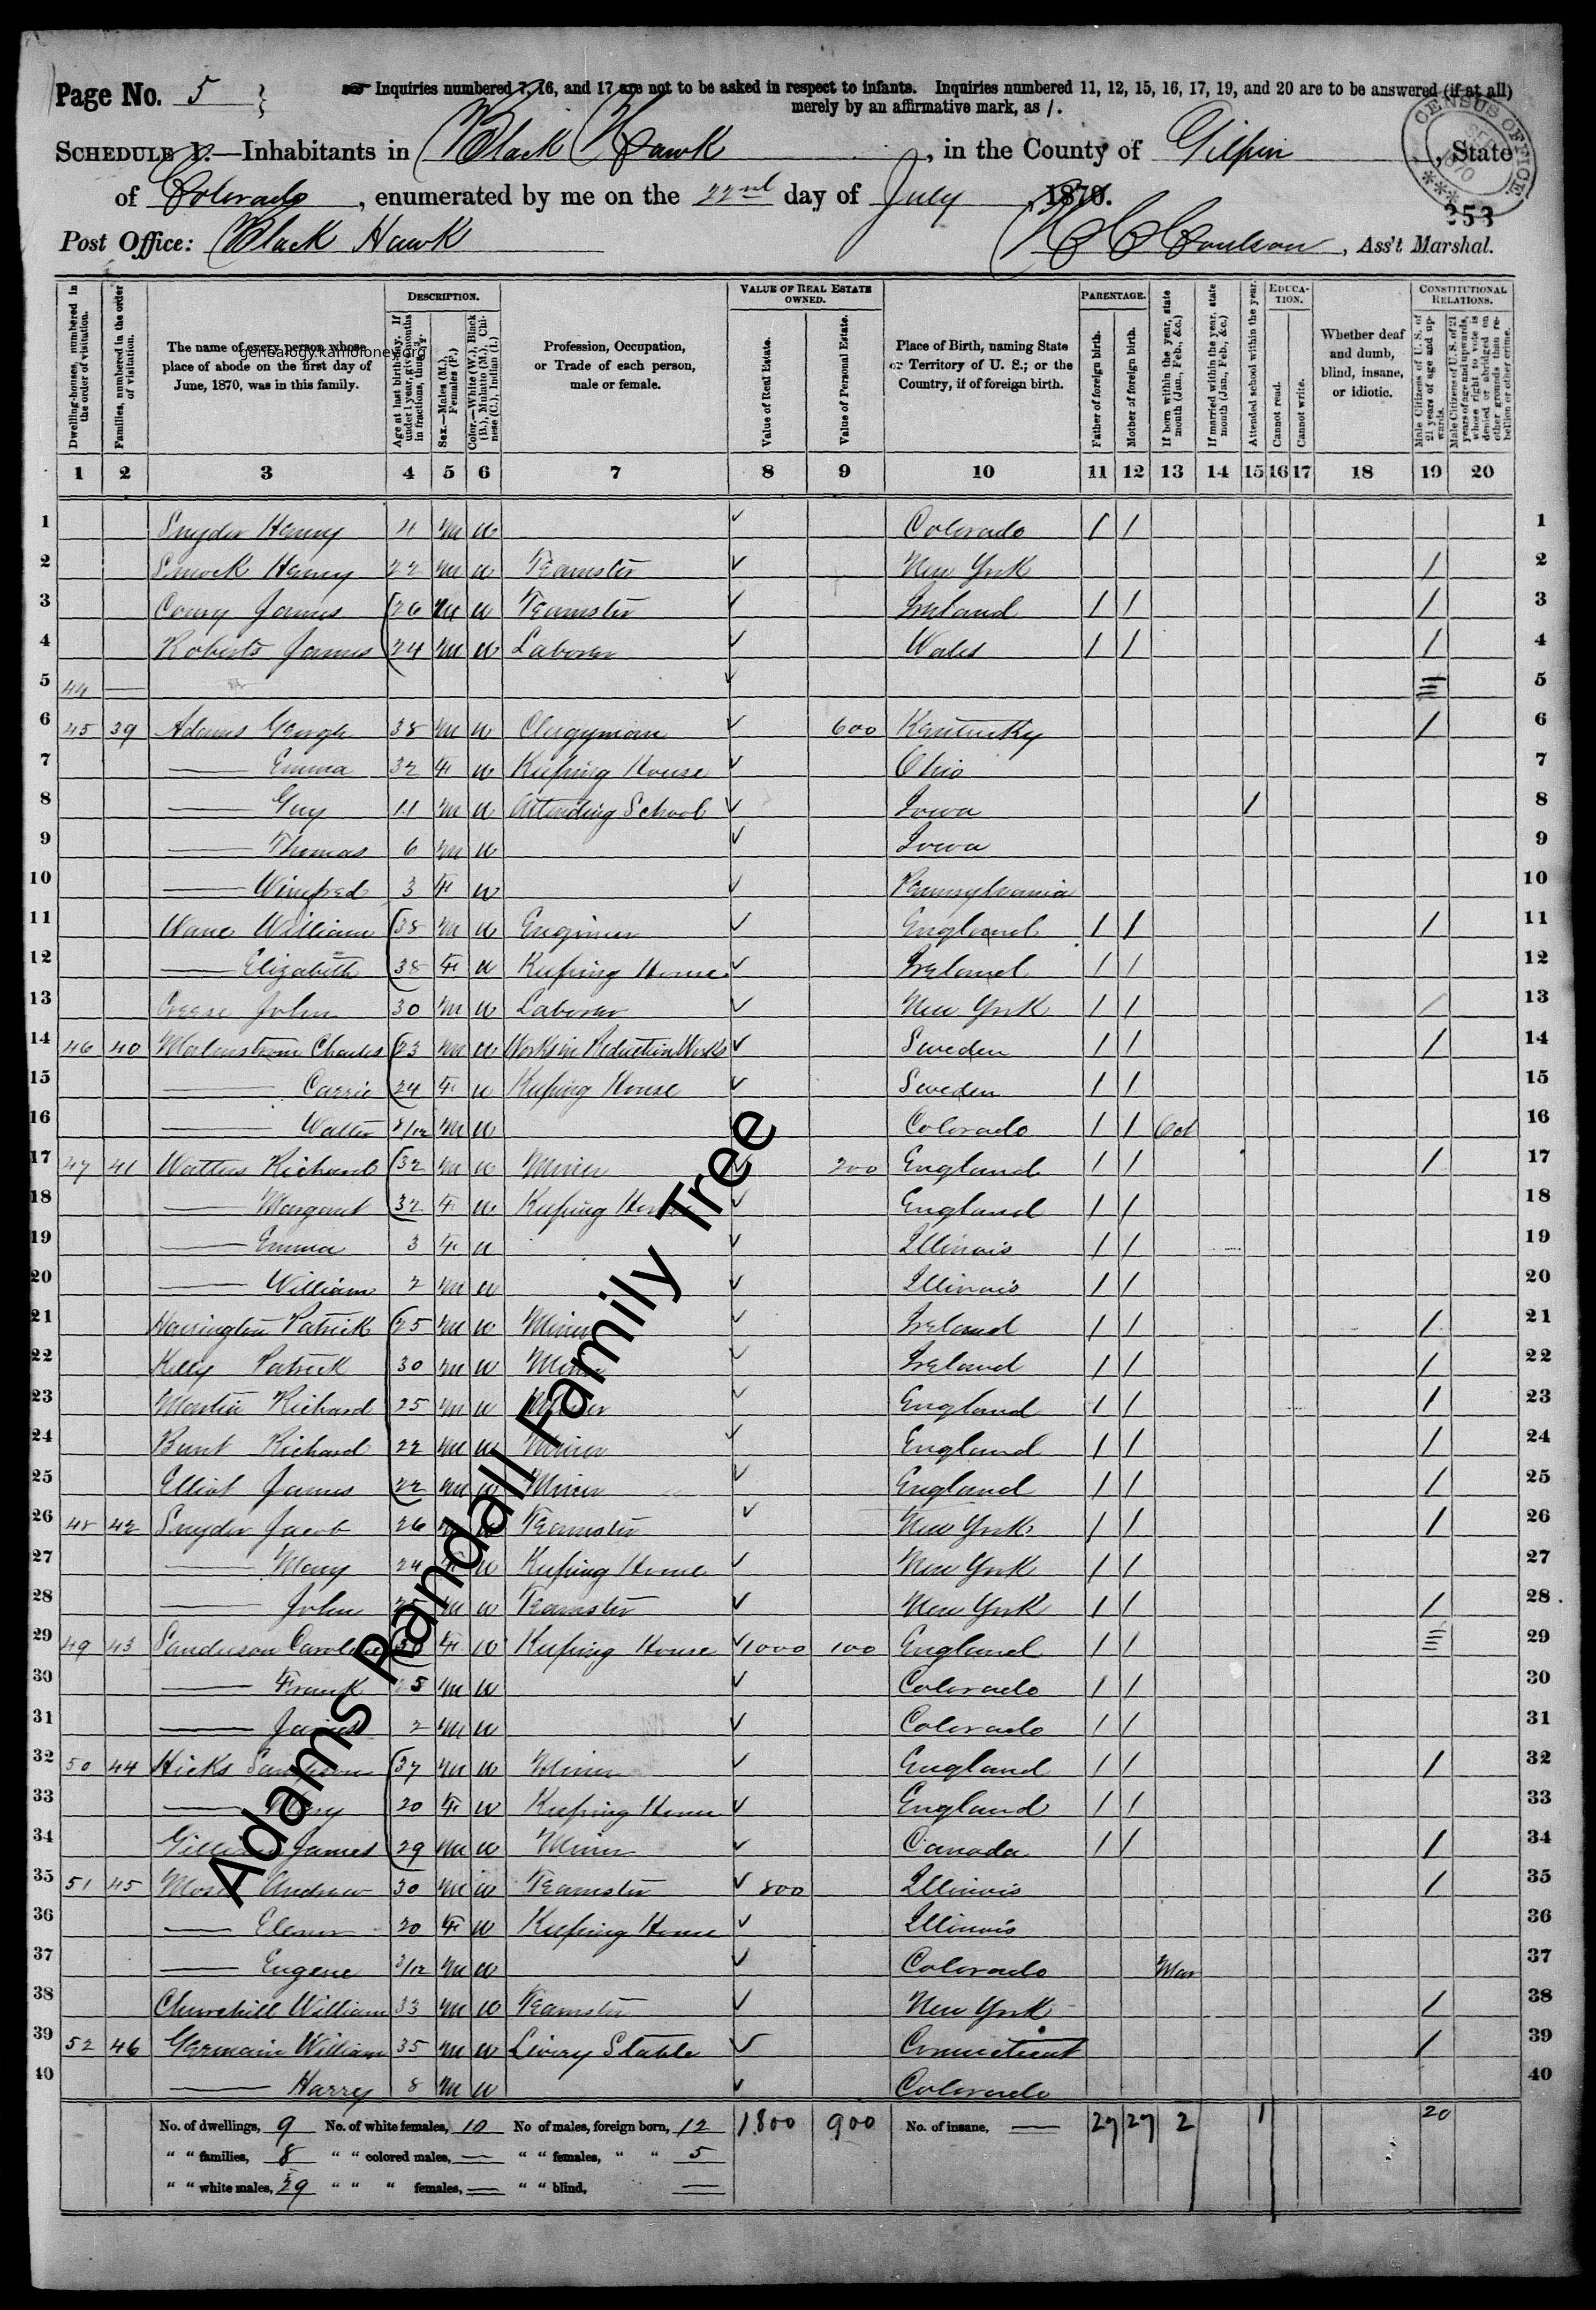 Page No. 5
Inquiries numbered 7, 16, and 17 are not to be asked in respect to infants. Inquiries numbered 11, 12, 15, 16, 17, 19, and 20 are to be answered (if at all)
merely by an affirmative mark, as /.
CENSUS OFFICE 1870
SCHEDULE 1.—Inhabitants in Black Hawk, in the County of Gilpin, State
of Colorado, enumerated by me on the 22nd day of July, 1870.
353
Post Office: Black Hawk Coulson, Ass't Marshal.
Dwelling-houses, numbered in the order of visitation.
Families, numbered in the order of visitation.
The name of every person whose place of abode on the first day of June, 1870, was in this family.
genealogy.kamoloney.org
DESCRIPTION.
Age at last birth-day. If under 1 year, give months in fractions, thus
Sex.—Males (M.), Females (F.)
Color.—White (W.), Black (B.), Mulatto (M.), Chinese (C.), Indian (I.)
Profession, Occupation, or Trade of each person, male or female.
VALUE OF REAL ESTATE OWNED.
Value of Real Estate.
Value of Personal Estate.
Place of Birth, naming State or Territory of U. S.; or the Country, if of foreign birth.
PARENTAGE.
Father of foreign birth.
Mother of foreign birth.
If born within the year, state month (Jan., Feb., &c.)
If married within the year, state month (Jan., Feb., &c.)
Attended school within the year.
EDUCATION.
Cannot read.
Cannot write.
Whether deaf and dumb, blind, insane, or idiotic.
CONSTITUTIONAL RELATIONS.
Male Citizens of U. S. of 21 years of age and upwards.
Male Citizens of U. S. of 21 years of age and upwards, whose right to vote is denied or abridged on other grounds than rebellion or other crime.
1 2 3 4 5 6 7 8 9 10 11 12 13 14 15 16 17 18 19 20
1 Snyder Henry 4 M W Colorado / / 1
2 Smock Henry 22 M W Teamster New York / 2
3 James 26 M W Teamster Ireland / / / 3
4 Roberts James 24 M W Laborer Wales / / / 4
5 44 — 5
6 45 39 Adams George 38 M W Clergyman 600 Kentucky / 6
7 — Emma 32 F W Keeping House Ohio 7
8 — Guy 11 M W Attending School Iowa / 8
9 — Thomas 6 M W Iowa 9
10 — Winifred 3 F W Pennsylvania 10
11 William 38 M W Engineer England / / / 11
12 — Elizabeth 38 F W Keeping House Ireland / / 12
13 John 30 M W Laborer New York / / / 13
14 46 40 Malmstrom Charles 23 M W Works in Reduction Works Sweden / / / 14
15 — Carrie 24 F W Keeping House Sweden / / 15
16 — Walter 8/12 M W Colorado / / Oct 16
17 47 41 Watters Richard 32 M W Miner 200 England / / / 17
18 — Margaret 32 F W Keeping House England / / 18
19 — Emma 3 F W Illinois / / 19
20 — William 2 M W Illinois / / 20
21 Harrington Patrick 25 M W Miner Ireland / / / 21
22 Kelly Patrick 30 M W Miner Ireland / / / 22
23 Martin Richard 25 M W Miner England / / / 23
24 Bunt Richard 22 M W Miner England / / / 24
25 Elliot James 22 M W Miner England / / / 25
26 48 42 Snyder Jacob 26 M W Teamster New York / / / 26
27 — Mary 24 F W Keeping House New York / / 27
28 — John 25 M W Teamster New York / / / 28
29 49 43 Sanderson Caroline 30 F W Keeping House 1000 100 England / / 29
30 — Frank 5 M W Colorado / / 30
31 — 2 M W Colorado / / 31
32 50 44 Hicks Sampson 37 M W Miner England / / / 32
33 — Mary 20 F W Keeping House England / / 33
34 James 29 M W Miner Canada / / / 34
35 51 45 Andrew 30 M W Teamster 800 Illinois / 35
36 — Elenor 20 F W Keeping House Illinois 36
37 — Eugene 3/12 M W Colorado Mar 37
38 Churchill William 33 M W Teamster New York / 38
39 52 46 Germain William 35 M W Livery Stable Connecticut / 39
40 — Harry 8 M W Colorado 40
No. of dwellings, 9 No. of white females, 10 No of males, foreign born, 12 1800 900 No. of insane, — 27 27 2 1 20
" " families, 8 " " colored males, — " " females, " " 5
" " white males, 29 " " " females, — " " blind, —
Adams Randall Family Tree